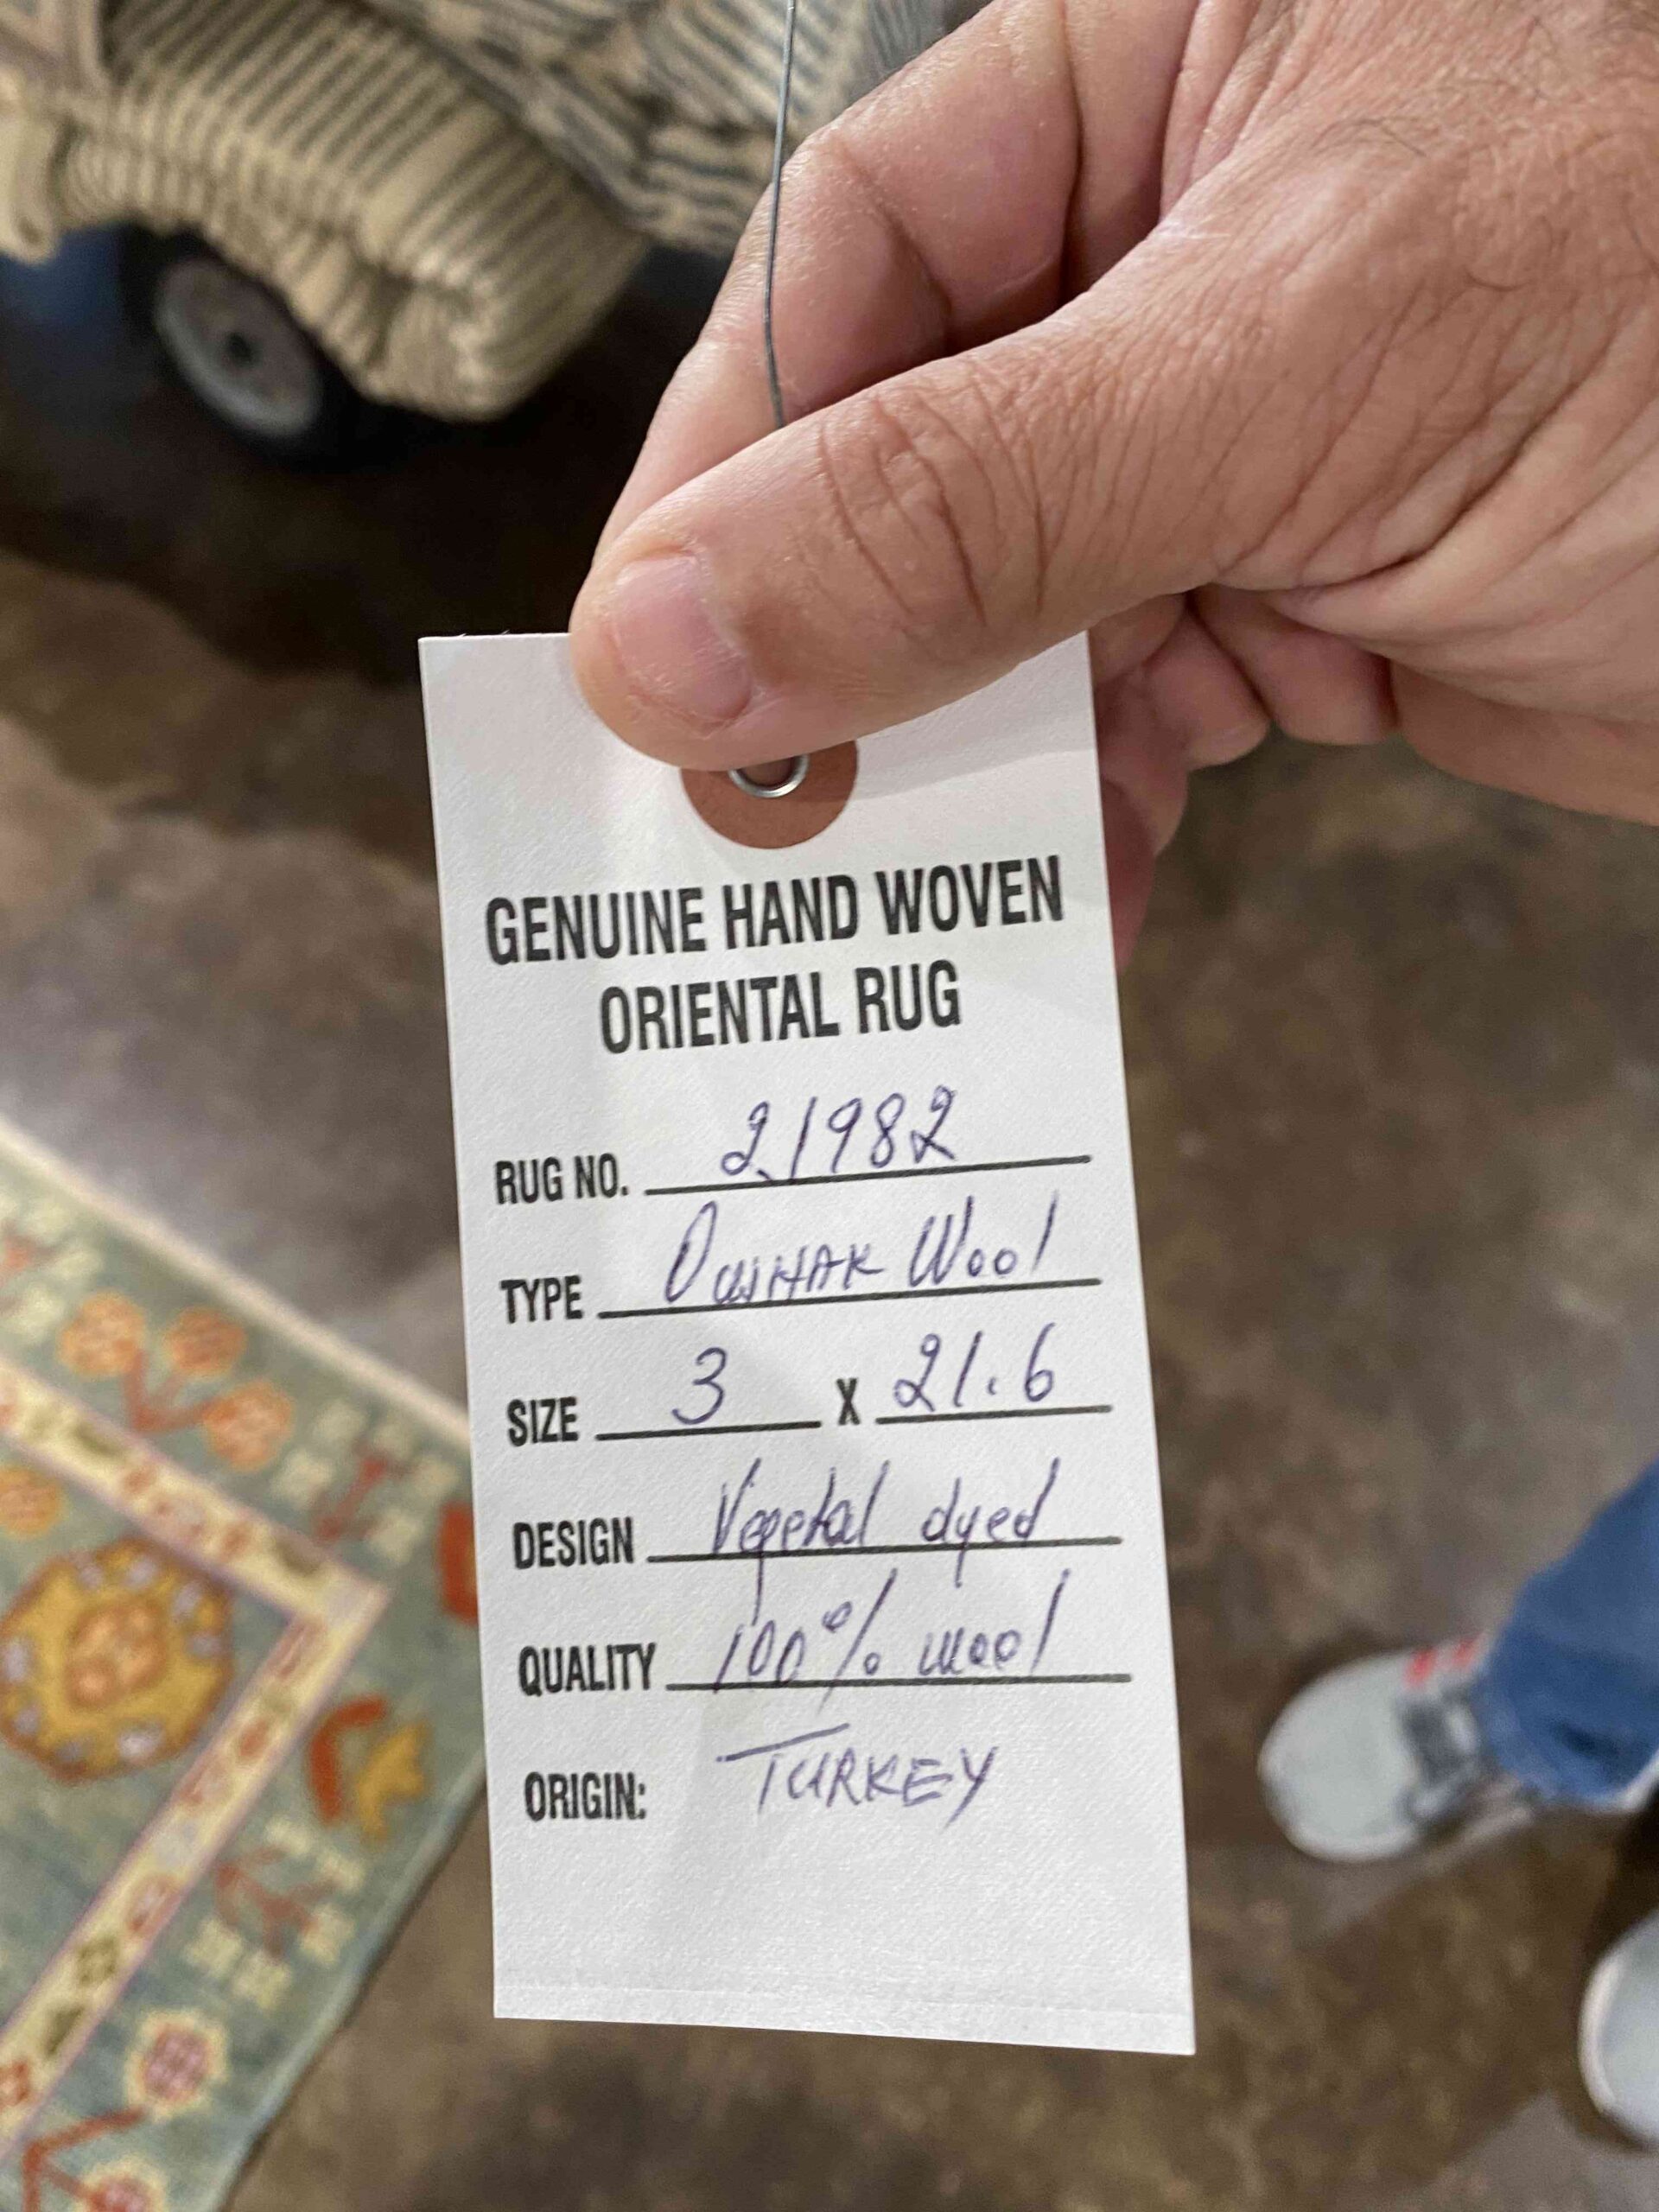 GENUINE HAND WOVEN
ORIENTAL RUG
RUG NO. 21982
TYPE OUSHAK Wool
SIZE 3 X 21.6
DESIGN Vegetal dyed
QUALITY 100% wool
ORIGIN: TURKEY